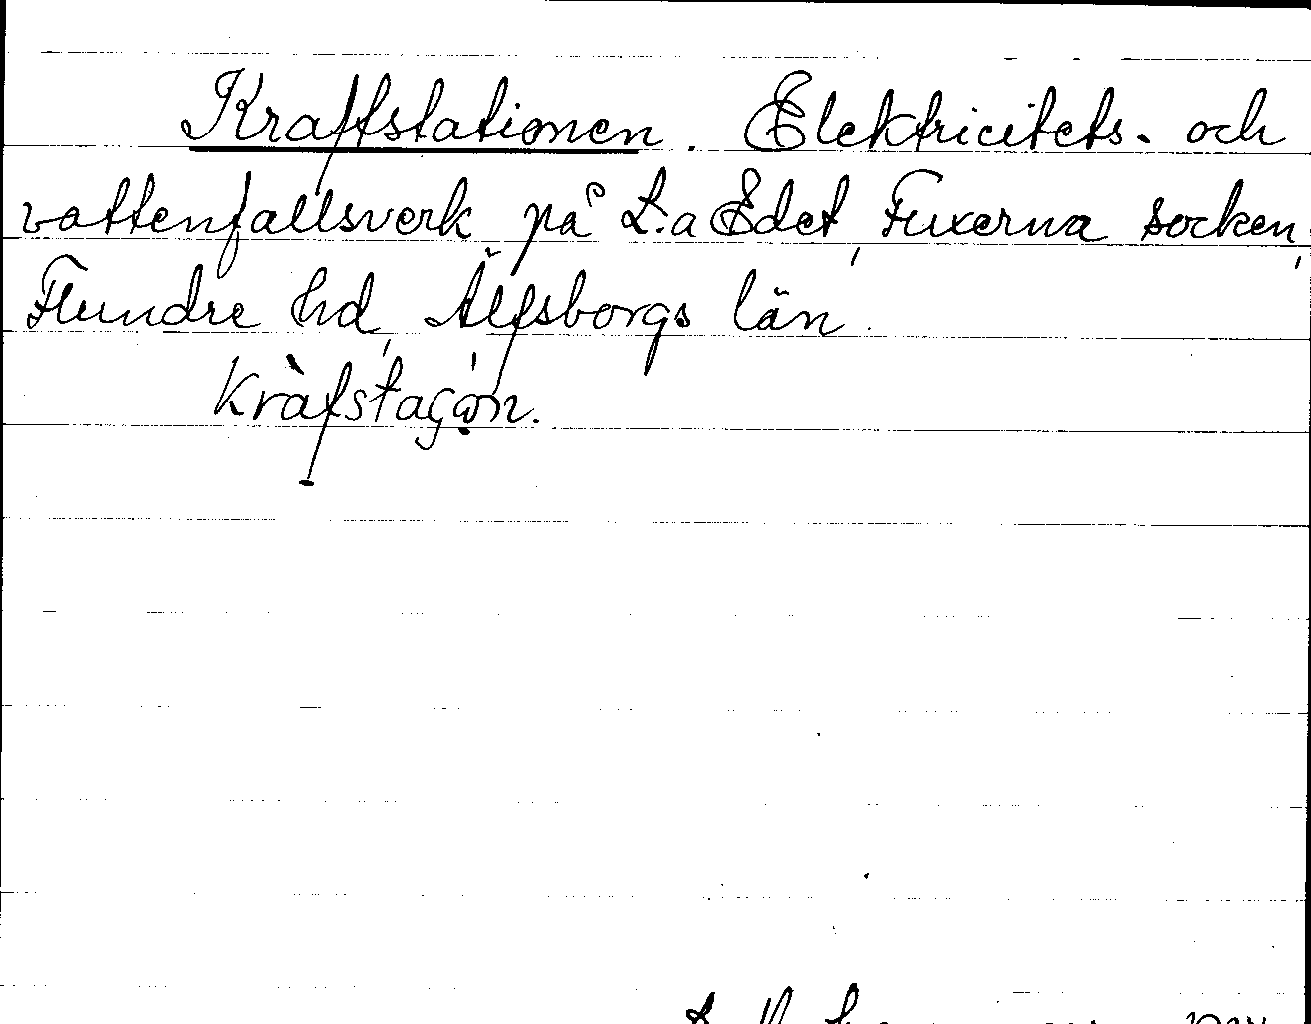 Kraftstationen. Elektricitets- och
vattenfallsverk på L:a Edet, Fuxerna socken,
Flundre hd, Älfsborgs län.